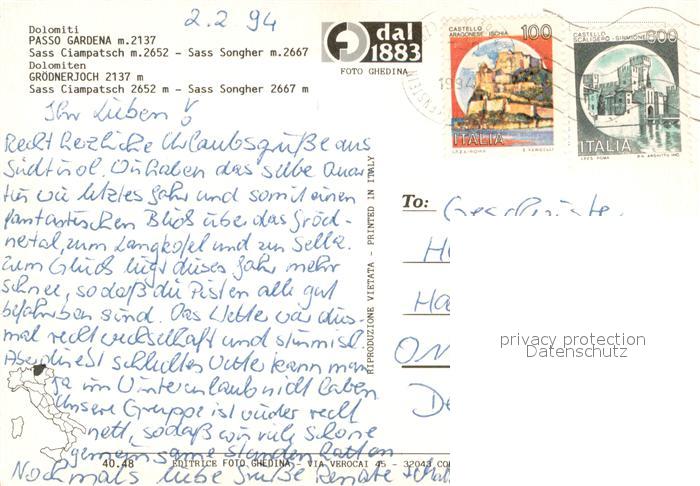 2.2.94
Dolomiti
PASSO GARDENA m.2137
Sass Ciampatsch m.2652 - Sass Songher m.2667
Dolomiten
GRÖDNERJOCH 2137 m
Sass Ciampatsch 2652 m - Sass Songher 2667 m
dal
1883
FOTO GHEDINA
1994
CASTELLO
ARAGONESE - ISCHIA
100
ITALIA
I.P.Z.S. - ROMA
CASTELLO
SCALIGERO - SIRMIONE
ITALIA
I.P.Z.S. ROMA
Ihr Lieben!
Recht herzliche Urlaubsgrüße aus
Südtirol. Wir haben das selbe Quar-
tier wie letztes Jahr und somit einen
fantastischen Blick über das Gröd-
nertal, zum Langkofel und zur Sella.
Zum Glück liegt dieses Jahr mehr
Schnee, so daß die Pisten alle gut
befahrbar sind. Das Wetter war dies-
mal recht wechselhaft und stürmisch.
Aber die schlechtes Wetter kann man
ja im Winterurlaub nicht haben
Unsere Gruppe ist wieder recht
nett, sodaß wir viele schöne
gemeinsame Stunden hatten
Nochmals liebe Grüße Renate
RIPRODUZIONE VIETATA - PRINTED IN ITALY
To: Geschwister
H
Ha
ON
De
privacy protection
Datenschutz
40.48 EDITRICE FOTO GHEDINA - VIA VEROCAI 45 - 32043 CO